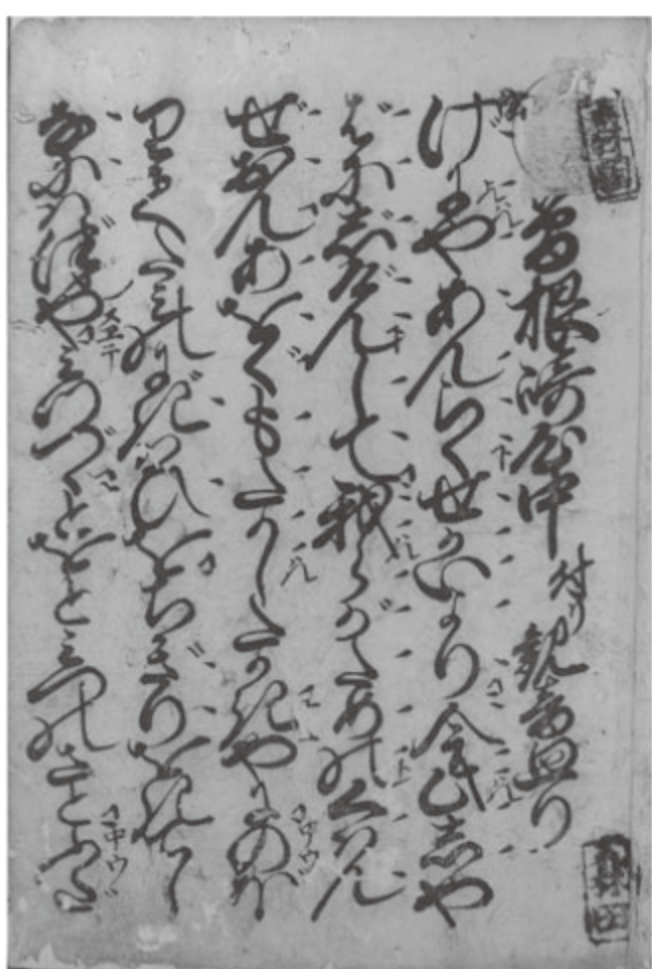 曽根崎心中 付り 観音廻り
げにやあんらくせかいより今此しや
ばにじげんして我らがためのくはん
ぜおんあをぐもたかしたかきやにのぼ
りてたみのにぎはひをちぎりをきてし
なにはづやみつづゝとをとみつのさとふだ